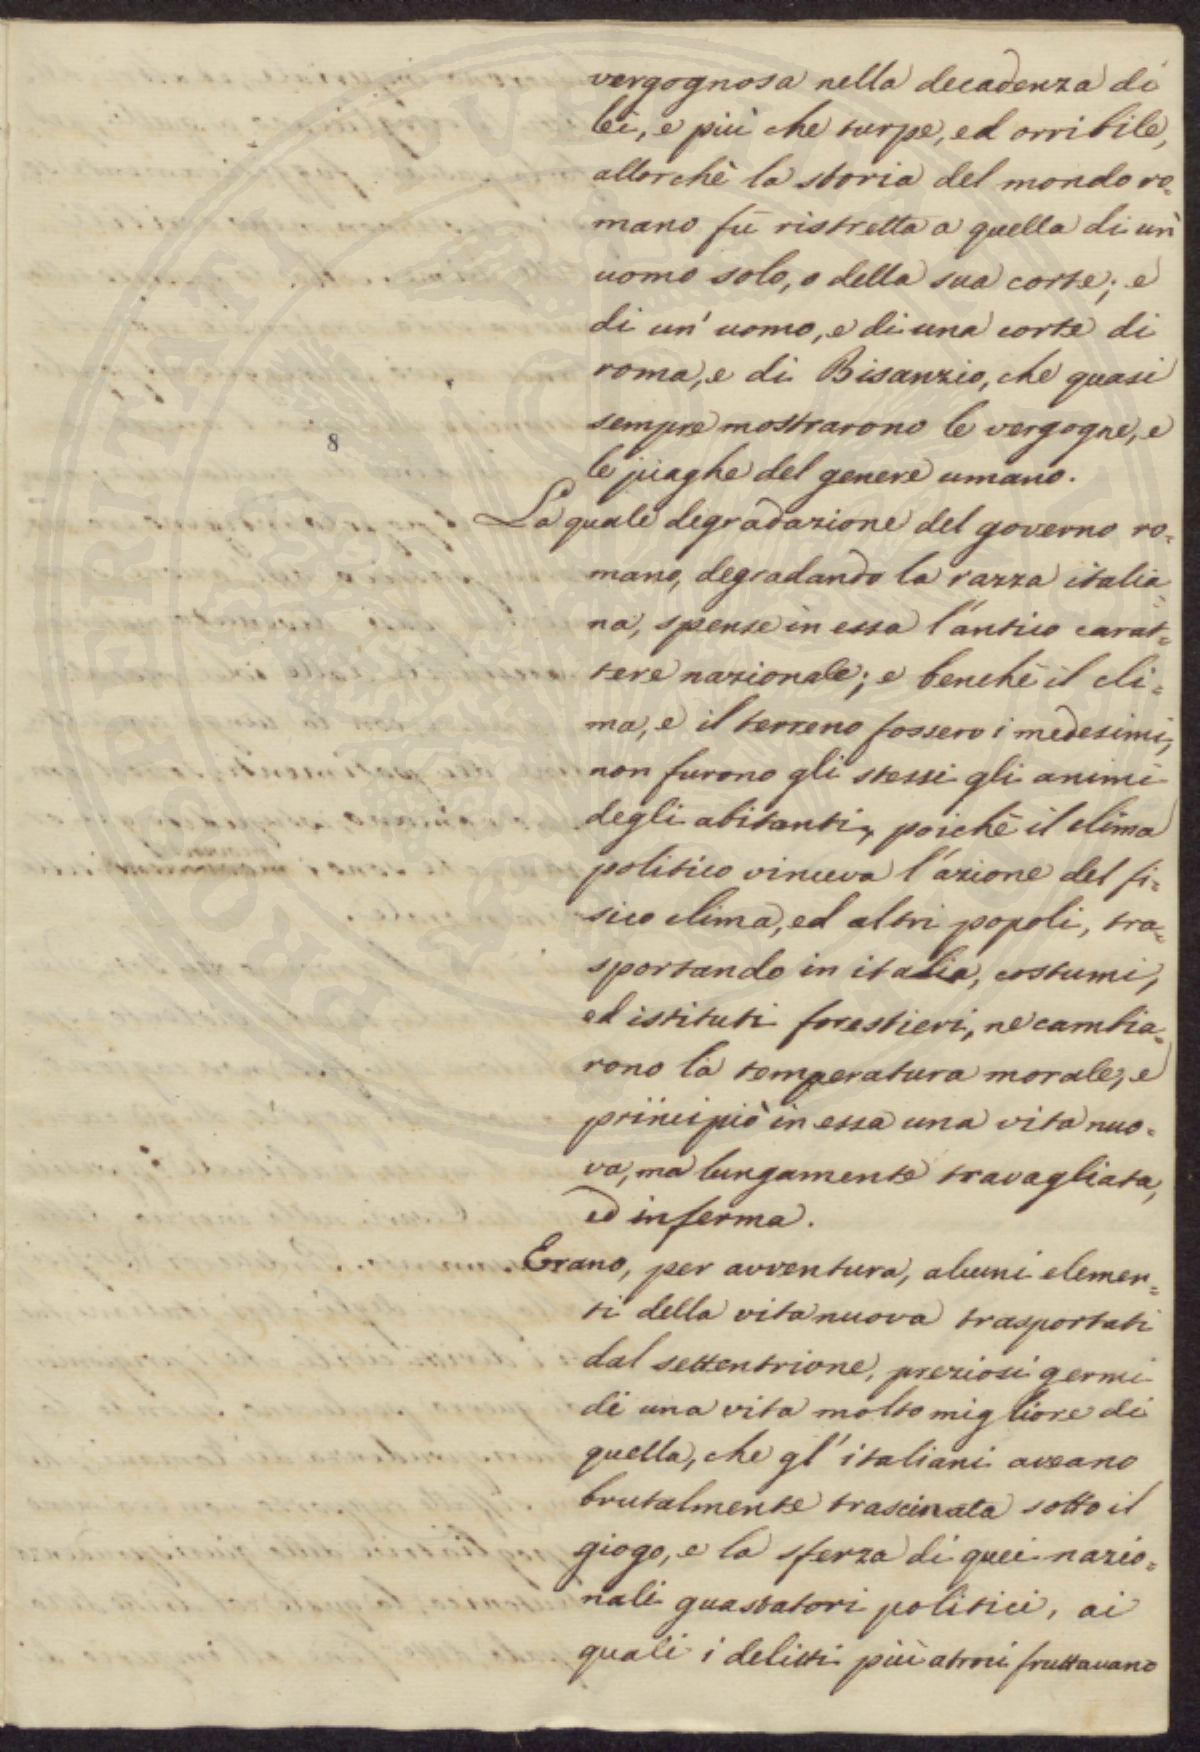 vergognosa nella decadenza di
lei, e più che turpe, ed orribile,
allorchè la storia del mondo ro=
mano fù ristretta a quella di un'
uomo solo, o della sua corte; e
di un' uomo, e di una corte di
roma, e di Bisanzio, che quasi
sempre mostrarono le vergogne, e
8
le piaghe del genere umano.
La quale degradazione del governo ro=
mano, degradando la razza italia=
na, spense in essa l'antico carat=
tere nazionale; e benchè il cli=
ma, e il terreno fossero i medesimi,
non furono gli stessi gli animi
degli abitanti, poichè il clima
politico vinceva l'azione del fi=
sico clima, ed altri popoli, tra=
sportando in italia, costumi,
ed istituti forestieri, ne cambia=
rono la temperatura morale, e
principiò in essa una vita nuo=
va, ma lungamente travagliata,
ed inferma.
Erano, per avventura, alcuni elemen=
ti della vita nuova trasportati
dal settentrione, preziosi germi
di una vita molto migliore di
quella, che gl' italiani aveano
brutalmente trascinata sotto il
giogo, e la sferza di quei nazio=
nali guastatori politici, ai
quali i delitti più atroci fruttavano